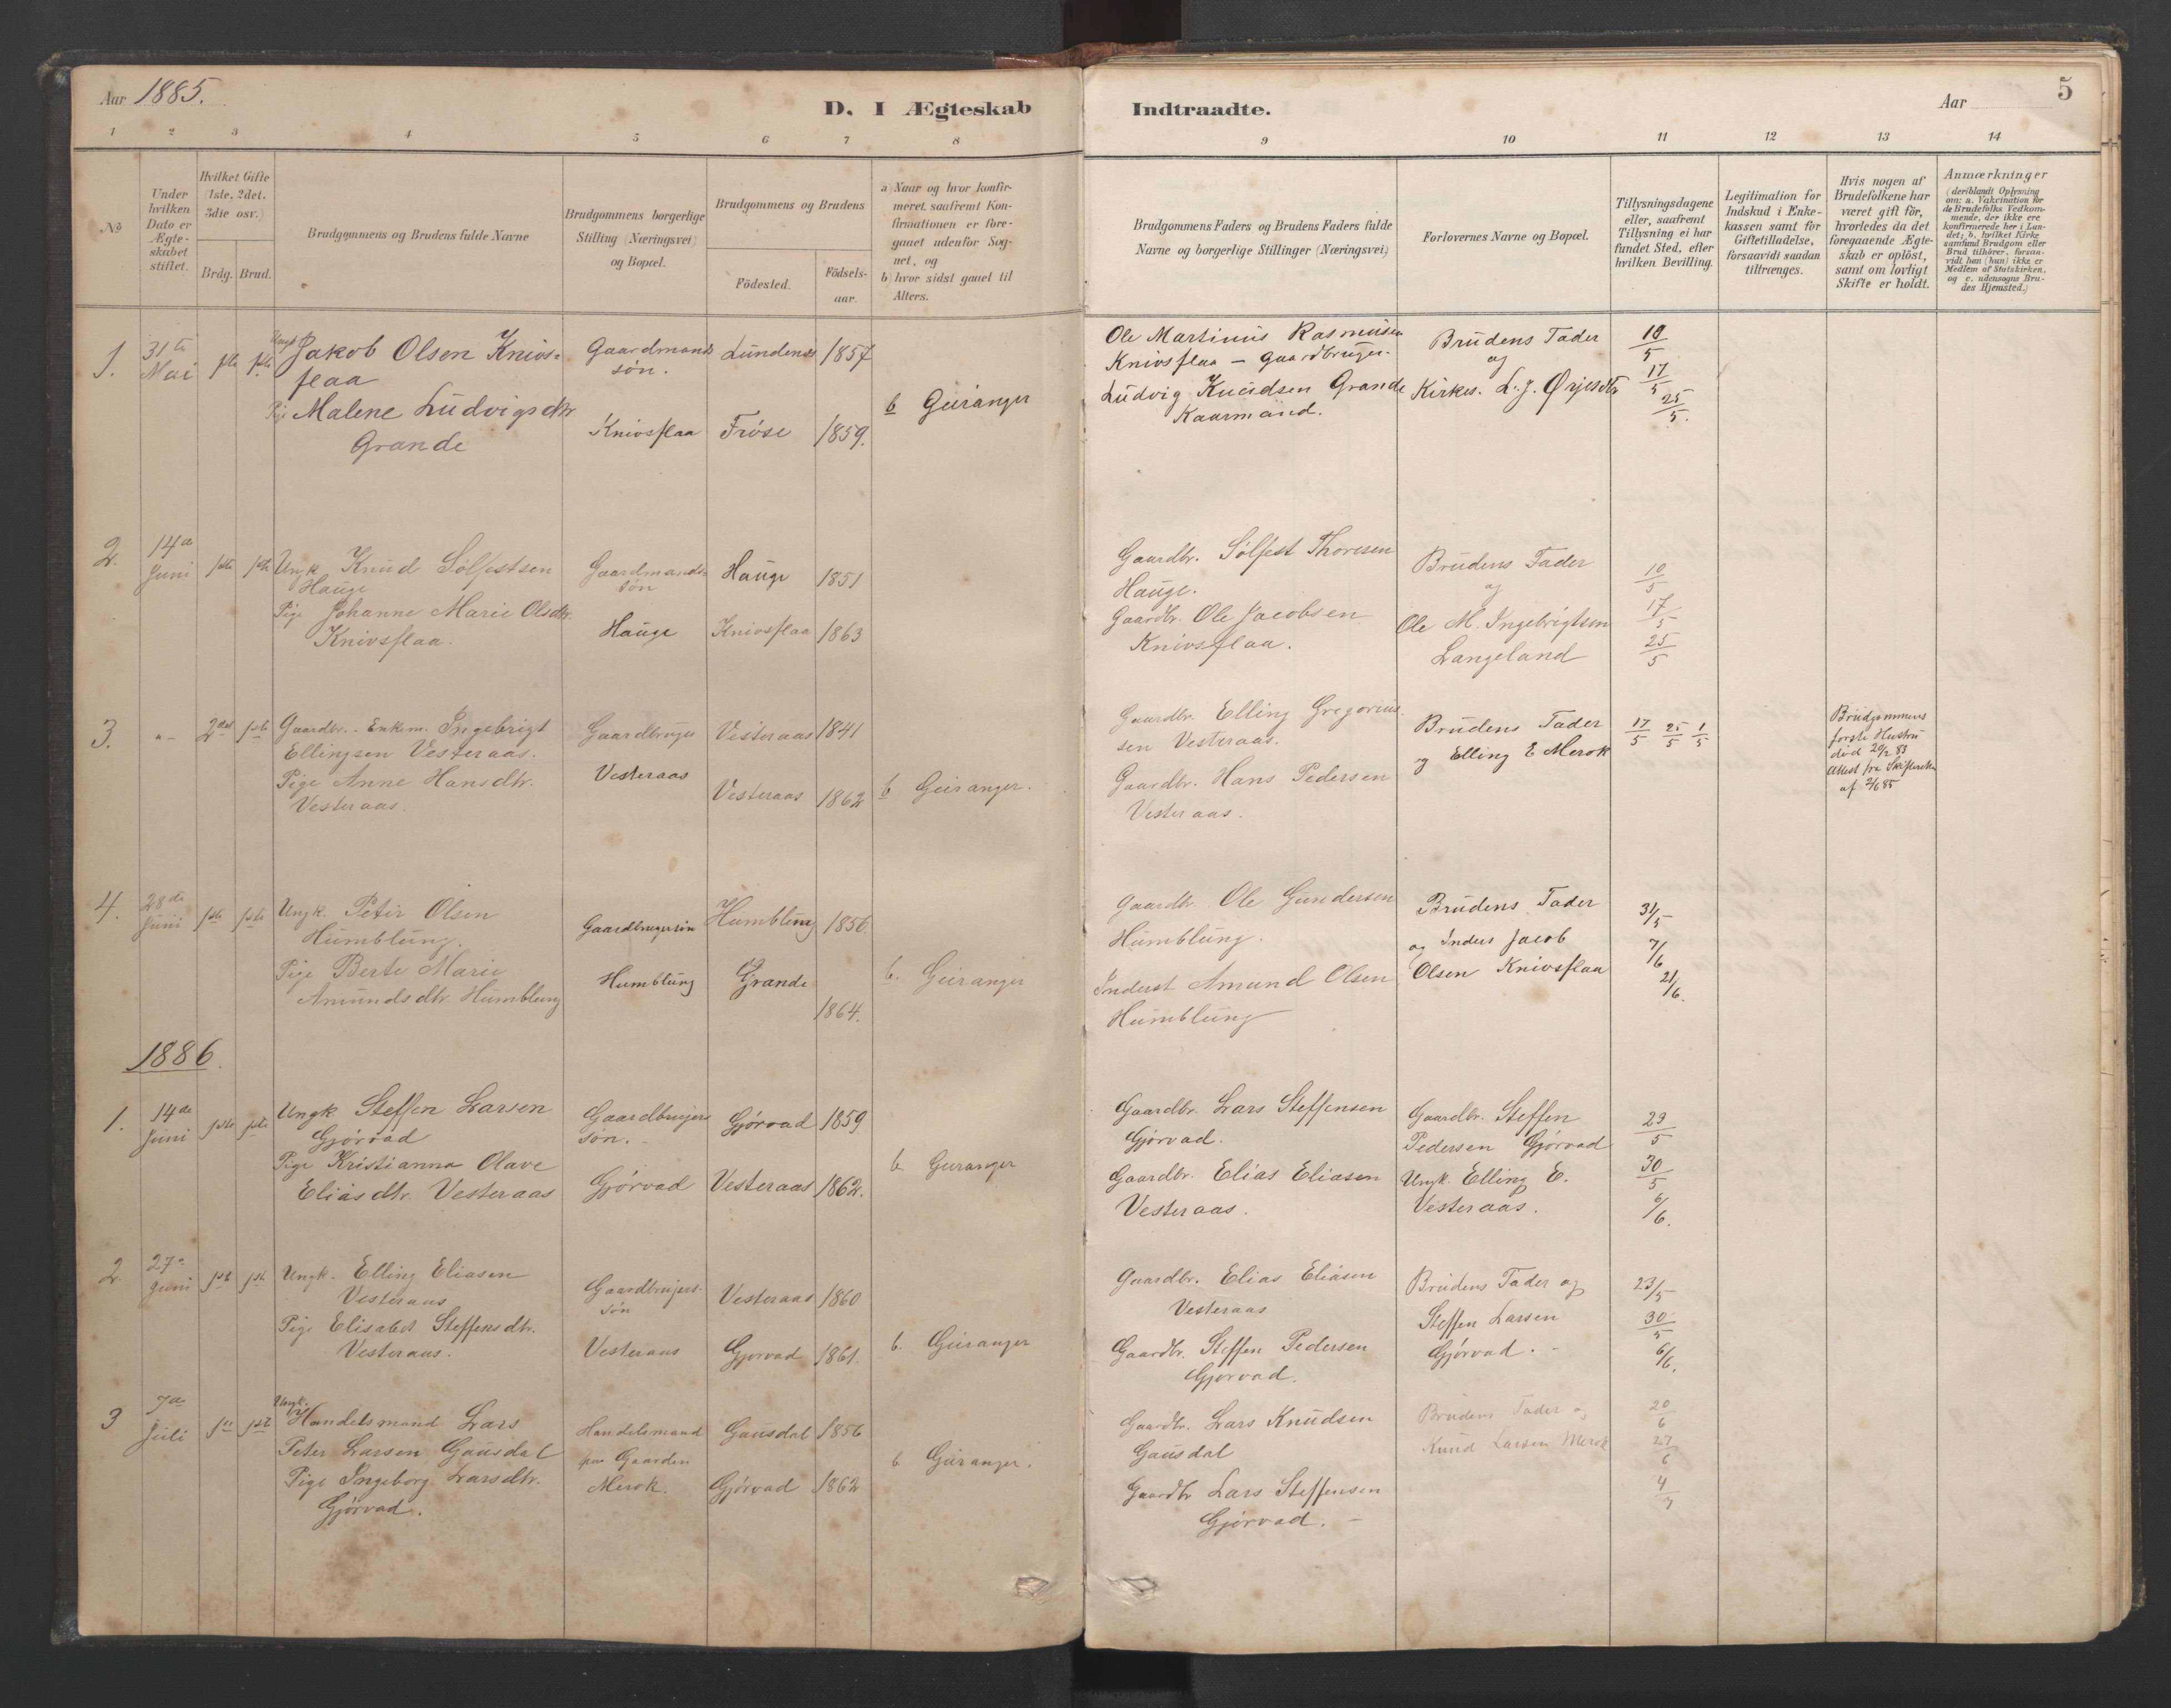 Aar 1885.
D. I Ægteskab
Indtraadte.
Aar
5
1 2 3 4 5 6 7 8 9 10 11 12 13 14
No
Under hvilken Dato er Ægte-skabet stiftet.
Hvilket Gifte (1ste, 2det, 3die osv.)
Brdg. Brud.
Brudgommens og Brudens fulde Navne
Brudgommens borgerlige Stilling (Næringsvei) og Bopæl.
Brudgommens og Brudens
Fødested.
Fødsels-aar.
a) Naar og hvor konfir-meret, saafremt Kon-firmationen er fore-gaaet udenfor Sog-net, og
b) hvor sidst gaaet til Alters.
Brudgommens Faders og Brudens Faders fulde Navne og borgerlige Stillinger (Næringsvei)
Forlovernes Navne og Bopæl.
Tillysningsdagene eller, saafremt Tillysning ei har fundet Sted, efter hvilken Bevilling.
Legitimation for Indskud i Enke-kassen samt for Giftetilladelse, forsaavidt saadan tiltrænges.
Hvis nogen af Brudefolkene har været gift før, hvorledes da det foregaaende Ægte-skab er opløst, samt om lovligt Skifte er holdt.
Anmærkninger
(deriblandt Oplysning om: a. Vakcination for de Brudefolks Vedkom-mende, der ikke ere konfirmerede her i Lan-det; b. hvilket Kirke samfund Brudgom eller Brud tilhører, forsaa-vidt han (hun) ikke er Medlem af Statskirken, og c. udensogns Bru-des Hjemsted.)
1. 31te Mai 1ste 1ste
Ungk Jakob Olsen Knivs=
flaa
Pige Malene Ludvigsdtr
Grande
Gaardmands
søn.
Knivsflaa
Lundenes 1857
Frøse 1859.
b Geiranger
Ole Martinus Rasmusen
Knivsflaa - Gaardbruger.
Ludvig Knudsen Grande
Kaarmand.
Brudens Fader
og
Kirkes. L. J. Ørjesdtr
10/5
17/5
25/5.
2. 14de Juni 1ste 1ste
Ungk Knud Sølfestsen
Hauge
Pige Johanne Marie Olsdtr.
Knivsflaa.
Gaardmands
søn
Hauge
Hauge 1851
Knivsflaa 1863
Gaardbr. Sølfest Thoresen
Hauge.
Gaardbr. Ole Jacobsen
Knivsflaa.
Brudens Fader
og
Ole M. Ingebrigtsen
Langeland
10/5
17/5
25/5
3. "- 2det 1ste
Gaardbr.. Enkem. Ingebrigt
Ellingsen Vesteraas.
Pige Anne Hansdtr.
Vesteraas.
Gaardbruger
Vesteraas
Vesteraas 1841
Vesteraas 1862
b Geiranger.
Gaardbr. Elling Gregorius
sen Vesteraas.
Gaardbr. Hans Pedersen
Vesteraas.
Brudens Fader
og Elling E Merok
17/5 25/5 1/5
Brudgommens
første Hustru
død 20/2 83
Attest fra Skifteretten
af 2/6 85
4. 28de Juni 1ste 1ste
Ungk. Peter Olsen
Humblung.
Pige Berte Marie
Amundsdtr. Humblung
Gaardbrugersøn
Humblung
Humblung 1856.
Grande
1864.
b. Geiranger
Gaardbr. Ole Gundersen
Humblung.
Inderst Amund Olsen
Humblung
Brudens Fader
og Inders Jacob
Olsen Knivsflaa
31/5
7/6
21/6.
1886.
1. 14de Juni 1ste 1ste
Ungk Steffen Larsen
Gjørvad
Pige Kristianna Olave
Eliasdtr. Vesteraas
Gaardbrugers
søn. -
Gjørvad
Gjørvad 1859
Vesteraas 1862.
b Geiranger
Gaardbr. Lars Steffensen
Gjørvad.
Gaardbr. Elias Eliasen
Vesteraas.
Gaardbr. Steffen
Pedersen Gjørvad
Ungk. Elling E.
Vesteraas.
23/5
30/5
6/6.
2. 27de Juni 1ste 1ste
Ungk. Elling Eliasen
Vesteraas
Pige Elisabet Steffensdtr.
Vesteraas.
Gaardbrugers-
søn
Vesteraas
Vesteraas 1860
Gjørvad 1861.
b. Geiranger
Gaardbr. Elias Eliasen
Vesteraas
Gaardbr. Steffen Pedersen
Gjørvad.
Brudens Fader og
Steffen Larsen
Gjørvad. -
23/5
30/5
6/6.
3 7de Juli 1ste 1ste
Ungk.
Handelsmand Lars
Peter Larsen Gausdal
Pige Ingeborg Larsdtr.
Gjørvad.
Handelsmand
paa Gaarden
Merok.
Gausdal 1856
Gjørvad 1862
b Geiranger.
Gaardbr. Lars Knudsen
Gausdal
Gaardbr Lars Steffensen
Gjørvad. -
Brudens Fader og
Knud Larsen Merok
20/6
27/6
4/7